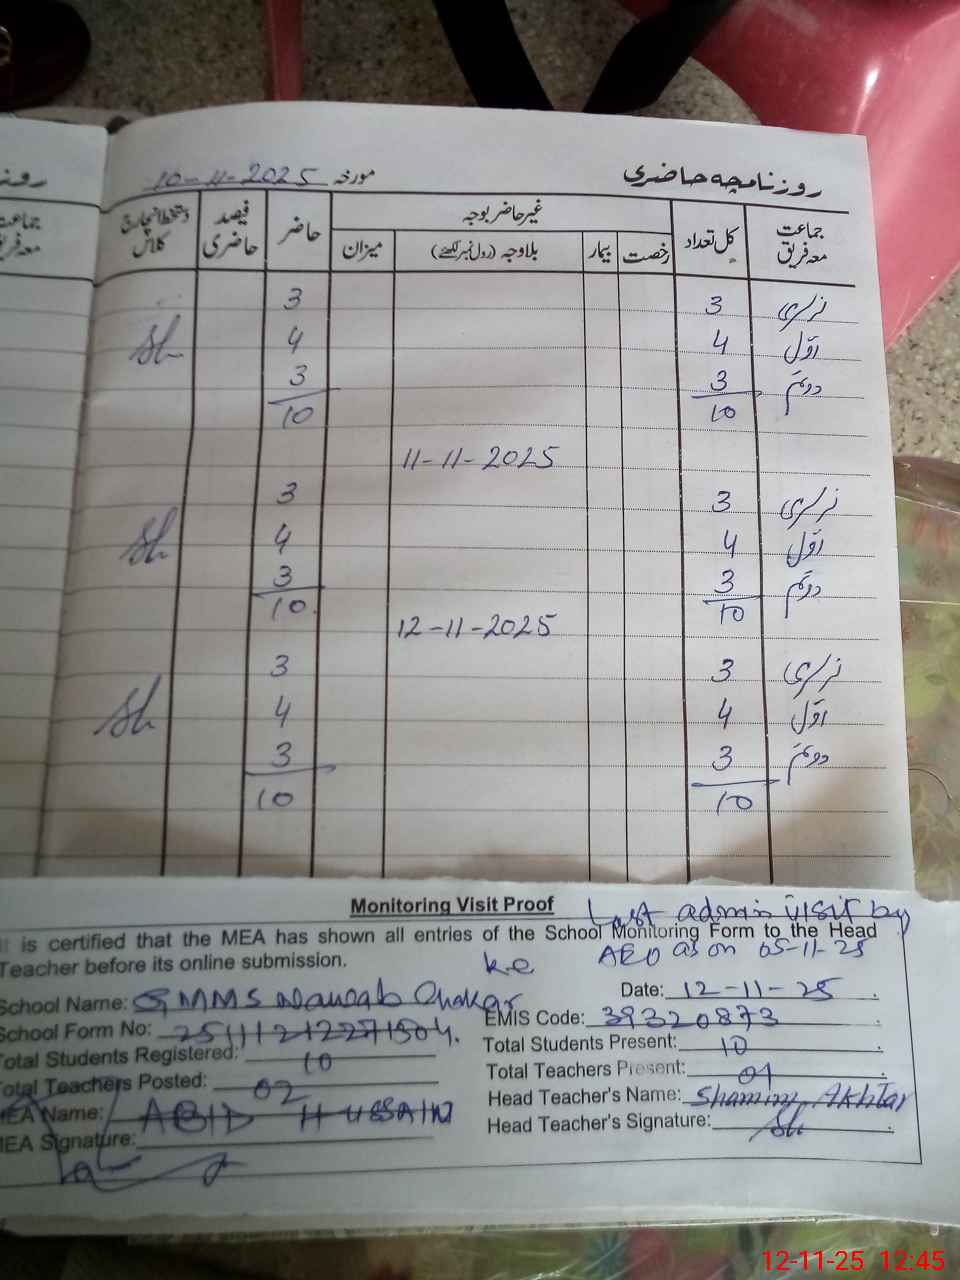 روزنامچہ حاضری مورخہ 10-11-2025
جماعت معہ فریق کل تعداد غیر حاضر بوجہ حاضر فیصد حاضری دستخط انچارج کلاس
رخصت بیمار بلاوجہ (رول نمبر لکھئے) میزان
نرسری 3 3
اوّل 4 4
دوئم 3 3
10 10
11-11-2025
نرسری 3 3
اوّل 4 4
دوئم 3 3
10 10
12-11-2025
نرسری 3 3
اوّل 4 4
دوئم 3 3
10 10
روز
جماعت
معہ فریق
Monitoring Visit Proof
Last admin visit by
AEO as on 05-11-25
It is certified that the MEA has shown all entries of the School Monitoring Form to the Head
Teacher before its online submission.
School Name: GMMS Nawab Chakar ke Date: 12-11-25
School Form No: EMIS Code: 39320873
Total Students Registered: 10 Total Students Present: 10
Total Teachers Posted: 02 Total Teachers Present: 01
MEA Name: ABID HUSSAIN Head Teacher's Name: Shamim Akhtar
MEA Signature: Head Teacher's Signature:
12-11-25 12:45